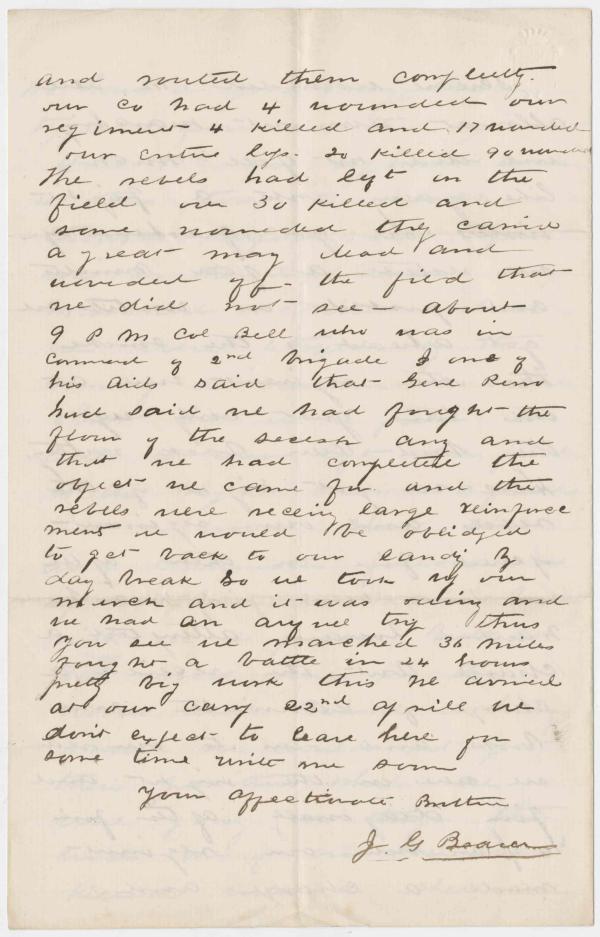 and routed them completty.
our co had 4 wounded our
regiment 4 killed and 17 wounded
our entire loss. 20 killed 90 wounded
The rebels had left on the
field over 30 killed and
some wounded they carrid
a great may dead and
wounded off the fild that
we did not see — about
9 P M Col Bell who was in
command of 2nd brigade & one of
his aids said that Genl Reno
had said we had fought the
flour of the secesh army and
that we had completed the
object we came for and the
rebels were receiving large reinforce
ments we would be oblidged
to get back to our landing by
day break so we took up our
march and it was raining and
we had an awfull trip thus
you see we marched 36 miles
fought a battle in 24 hours
pretty big work this we arrived
at our camp 22nd Aprill we
dont expect to leave here for
some time write me soon
Your affectionate Brother
J. G.